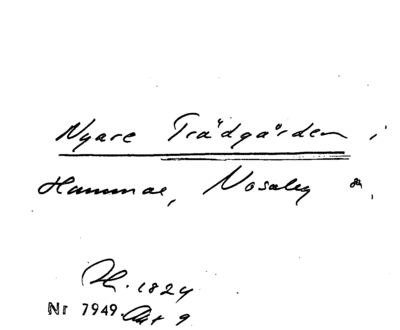 Nyare Trädgården i
Hammar, Nosaby sn,
H. 1824
Nr 7949. Akt 9